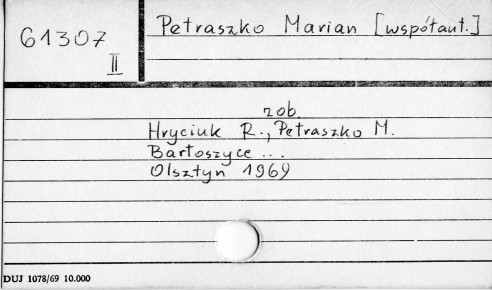 61307
II
Petraszko Marian [współaut.]
zob.
Hryciuk R., Petraszko M.
Bartoszyce ...
Olsztyn 1969
DUJ 1078/69 10.000